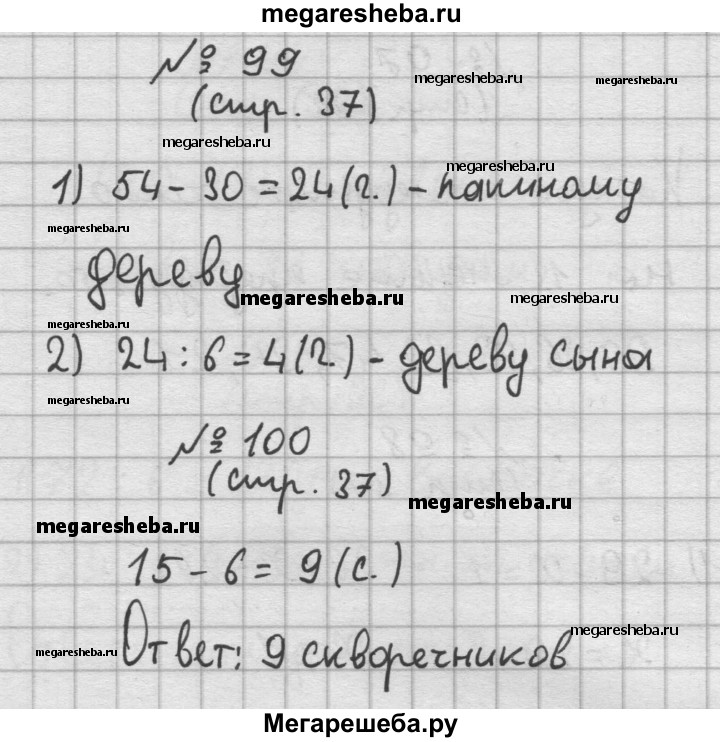 megaresheba.ru
№ 99
megaresheba.ru
megaresheba.ru
(стр. 37)
megaresheba.ru
megaresheba.ru
1) 54 - 30 = 24 (г.) - папиному
megaresheba.ru
дереву
megaresheba.ru
megaresheba.ru
megaresheba.ru
2) 24 : 6 = 4 (г.) - дереву сына
megaresheba.ru
№ 100
(стр. 37)
megaresheba.ru
megaresheba.ru
15 - 6 = 9 (с.)
megaresheba.ru
Ответ: 9 скворечников
megaresheba.ru
Мегарешеба.ру